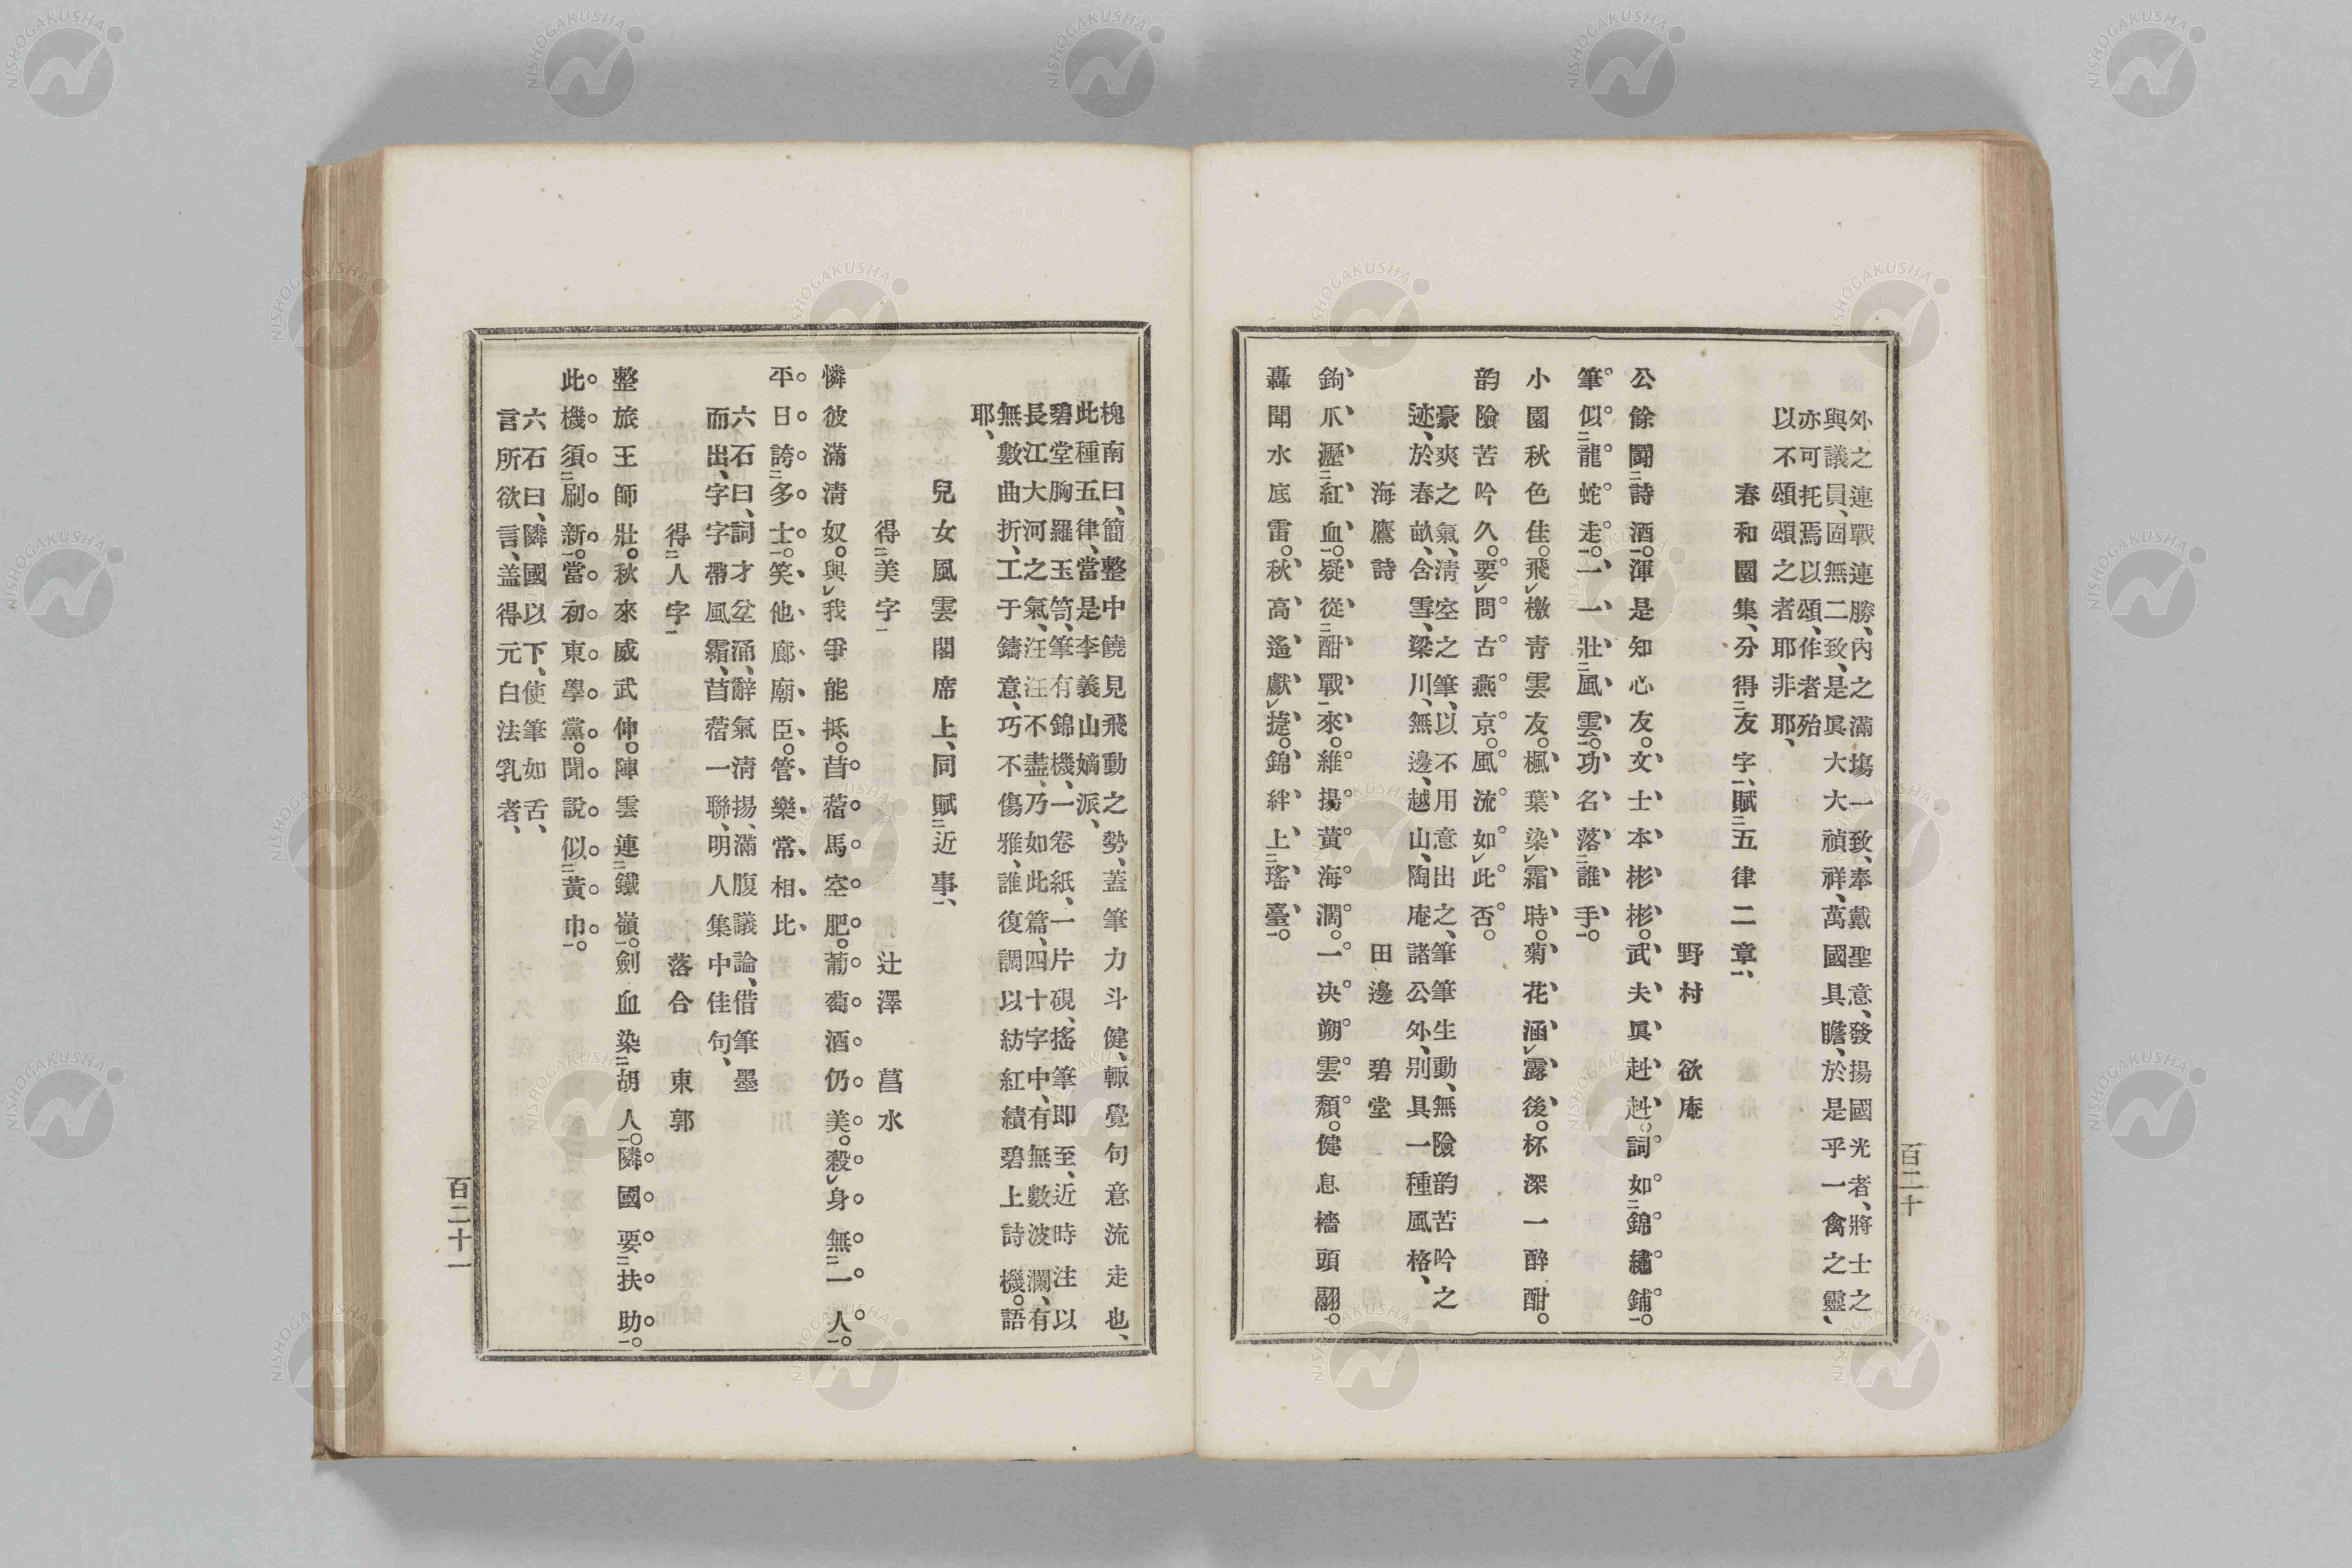 外之連戰連勝、內之滿塲一致、奉戴聖意、發揚國光者、將士之
與議員、固無二致、是眞大大禎祥、萬國具瞻、於是乎一禽之靈、
亦可托焉以頌、作者殆
以不頌頌之者耶非耶、
春和園集、分得友字、賦五律二章、
野村欲庵
公餘鬪詩酒。渾是知心友。文士本彬彬。武夫眞赳赳。詞如錦繡鋪。
筆似龍蛇走。一一壯風雲。功名落誰手。
小園秋色佳。飛檄靑雲友。楓葉染霜時。菊花涵露後。杯深一醉酣。
韵險苦吟久。要問古燕京。風流如此否。
豪爽之氣、淸空之筆、以不用意出之、筆筆生動、無險韵苦吟之
迹、於春畝、含雪、梁川、無邊、越山、陶庵諸公外、別具一種風格、
海鷹詩
田邊碧堂
鉤爪瀝紅血。疑從酣戰來。維揚黃海濶。一決朔雲頹。健息檣頭翮。
轟聞水底雷。秋高遙獻捷。錦絆上瑤臺。
百二十
槐南曰、簡整中饒見飛動之勢、蓋筆力斗健、輙覺句意流走也、
此種五律、當是李義山嫡派、
碧堂胸羅玉笥、筆有錦機、一卷紙、一片硯、搖筆即至、近時注以
長江大河之氣、汪汪不盡、乃如此篇、四十字中、有無數波瀾、有
無數曲折、工于鑄意、巧不傷雅、誰復調以紡紅績碧上詩機。語
耶、
兒女風雲閣席上、同賦近事、
得美字
辻澤菖水
憐彼滿淸奴。與我爭能抵。苜蓿馬空肥。葡萄酒仍美。殺身無一人。
平日誇多士。笑他廊廟臣。管樂常相比、
六石曰、詞才坌涌、辭氣淸揚、滿腹議論、借筆墨
而出、字字帶風霜、苜蓿一聯、明人集中佳句、
得人字
落合東郭
整旅王師壯。秋來威武伸。陣雲連鐵嶺。劍血染胡人。隣國要扶助。
此機須刷新。當初東學黨。聞說似黃巾。
六石曰、隣國以下、使筆如舌、
言所欲言、盖得元白法乳者、
百二十一
NISHOGAKUSHA